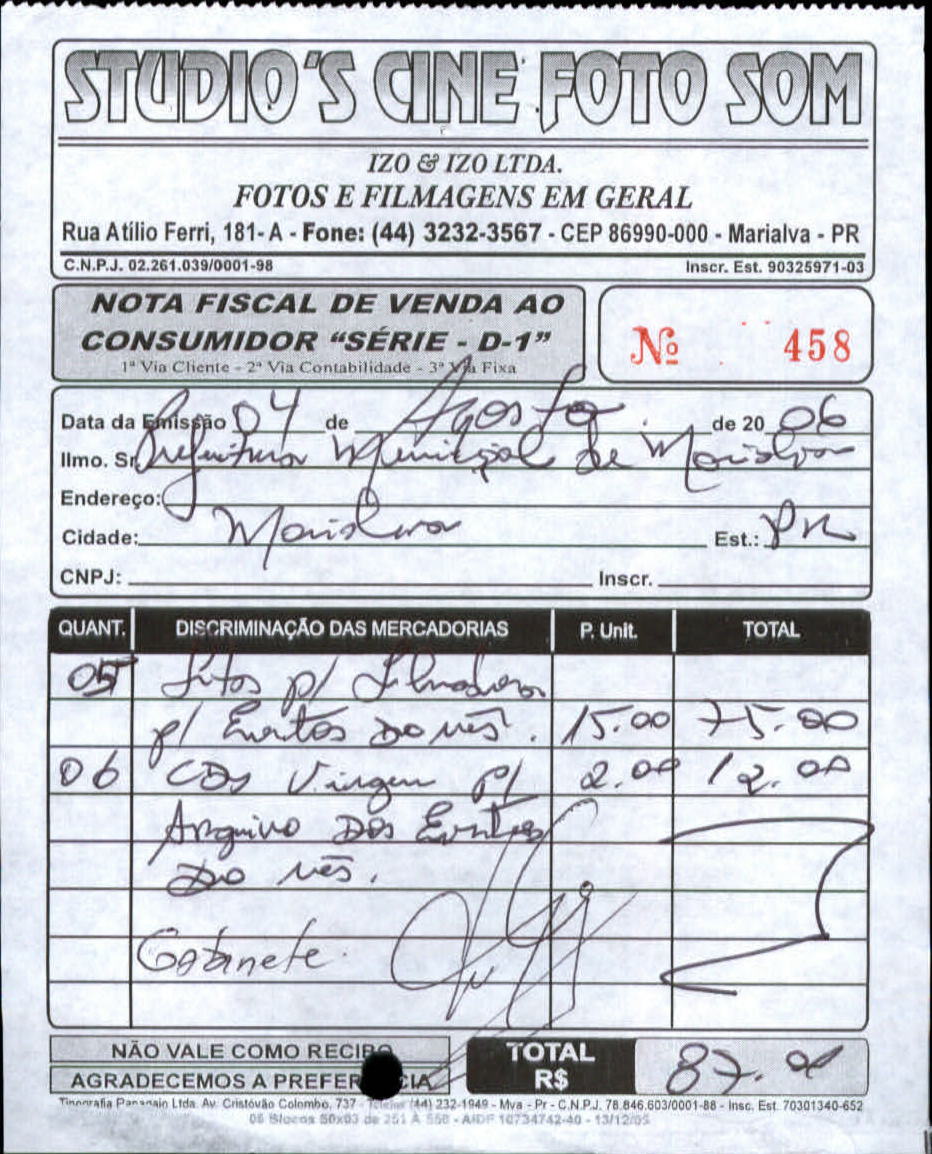 STUDIO'S CINE FOTO SOM
IZO & IZO LTDA.
FOTOS E FILMAGENS EM GERAL
Rua Atílio Ferri, 181-A - Fone: (44) 3232-3567 - CEP 86990-000 - Marialva - PR
C.N.P.J. 02.261.039/0001-98 Inscr. Est. 90325971-03
NOTA FISCAL DE VENDA AO
CONSUMIDOR "SÉRIE - D-1"
1ª Via Cliente - 2ª Via Contabilidade - 3ª Via Fixa
Nº 458
Data da Emissão 04 de Agosto de 20 06
Ilmo. Sr. Prefeitura Municipal de Marialva
Endereço:
Cidade: Marialva Est.: PR
CNPJ: Inscr.
QUANT. DISCRIMINAÇÃO DAS MERCADORIAS P. Unit. TOTAL
05 Fitas p/ Filmadora
p/ Eventos Do mês. 15.00 75.00
06 CDs Virgem p/ 2.00 12.00
Arquivo Dos Eventos
Do mês.
Gabinete
NÃO VALE COMO RECIBO
AGRADECEMOS A PREFER CIA
TOTAL
R$ 87.00
Tipografia Ltda. Av. Cristóvão Colombo, 737 - (44) 232-1949 - Mva - Pr - C.N.P.J. 78.846.603/0001-88 - Insc. Est. 70301340-652
06 Blocos 50x03 de 251 A 550 - AIDF 10734742-40 - 13/12/05